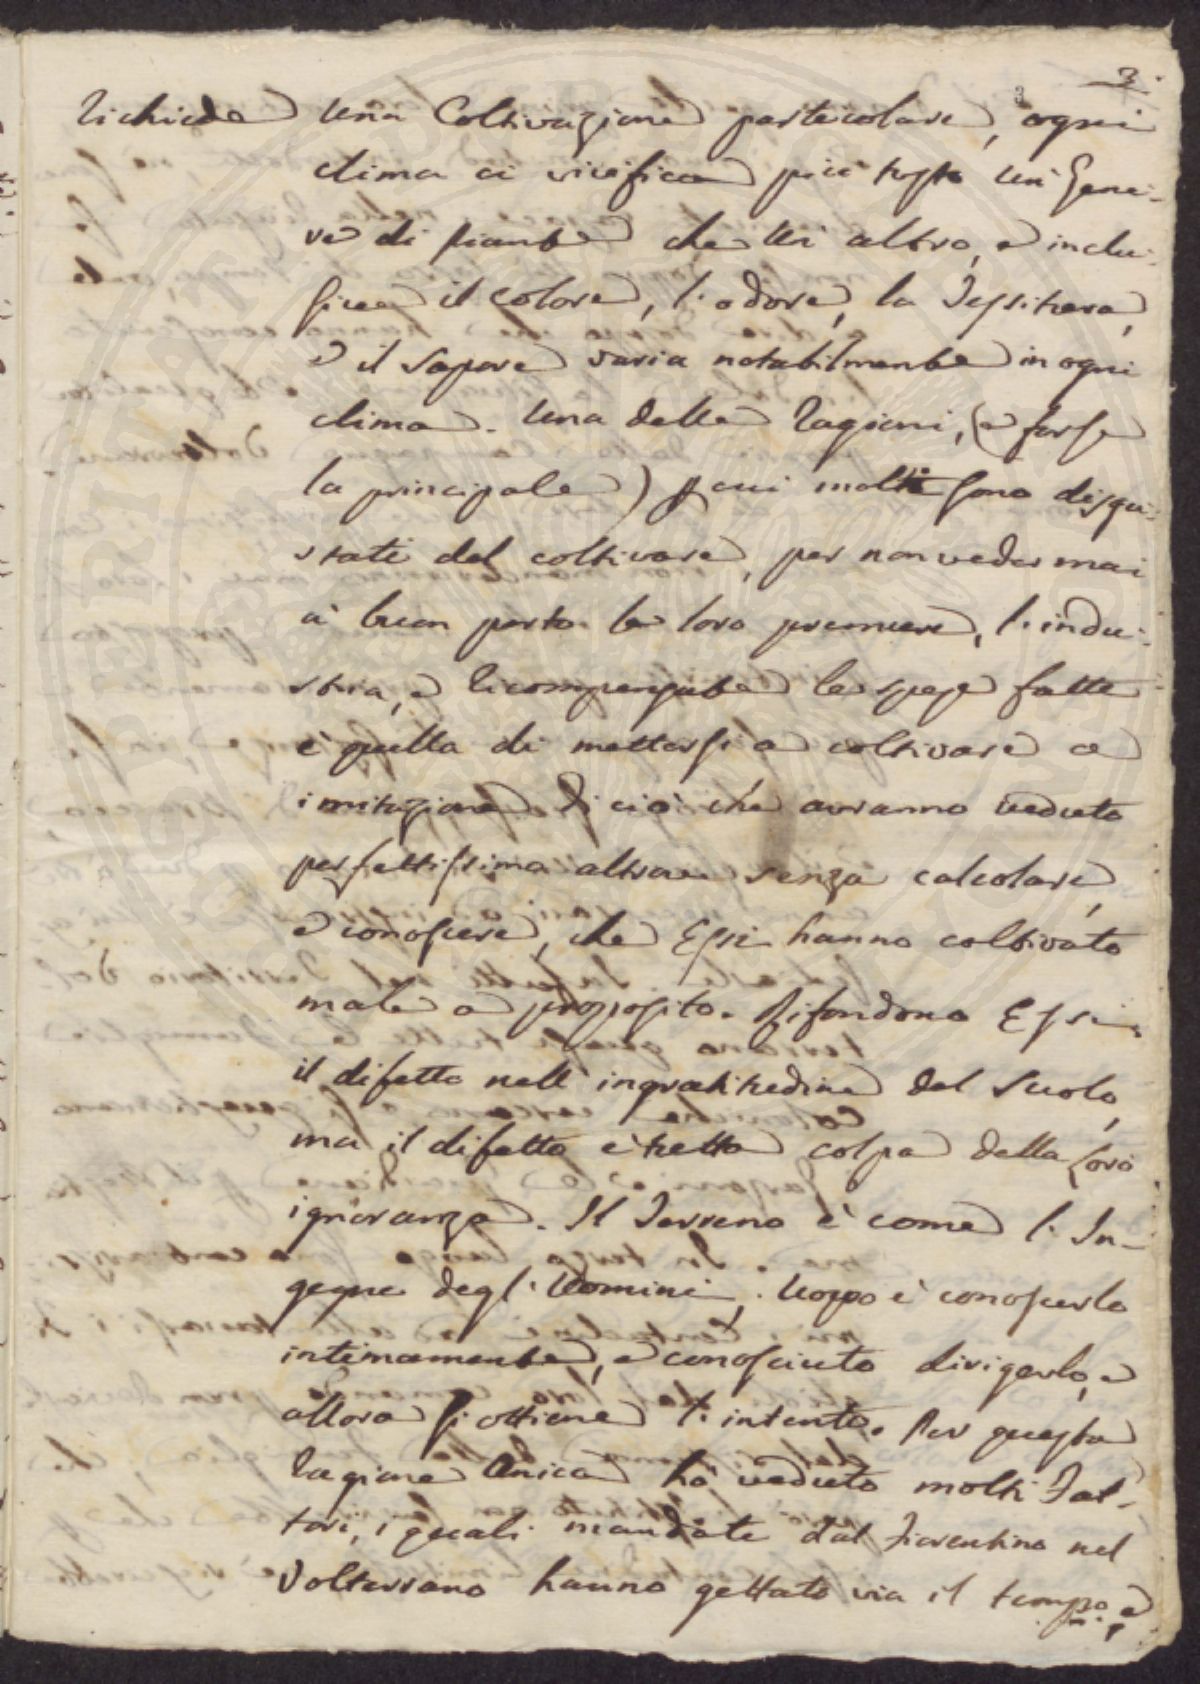 3.
3
Richiede una Coltivazione particolare, ogni
clima ci vivifica più tosto un Gene-
re di piante che un altro, e inclu-
sive il colore, l'odore, la Tessitura,
e il sapore varia notabilmente in ogni
clima. Una delle ragioni, (e forse
la principale) p cui molti sono disgu-
stati del coltivare, per non veder mai
a buon porto le loro premure, l'indu-
stria, e ricompensate le spese fatte
è quella di mettersi a coltivare a
imitazione di ciò che avranno veduto
perfettissimo altrove senza calcolare,
e conoscere, che Essi hanno coltivato
male a proposito. Rifondono Essi
il difetto nell'ingratitudine del Suolo,
ma il difetto è tutta colpa della loro
ignoranza. Il Terreno è come l'In-
gegno degl'Uomini, Uopo è conoscerlo
intimamente, e conosciuto dirigerlo, e
allora si ottiene l'intento. Per questa
ragione unica ho veduto molti Fat-
tori, i quali mandati dal Fiorentino nel
Volterrano hanno gettato via il tempo, e